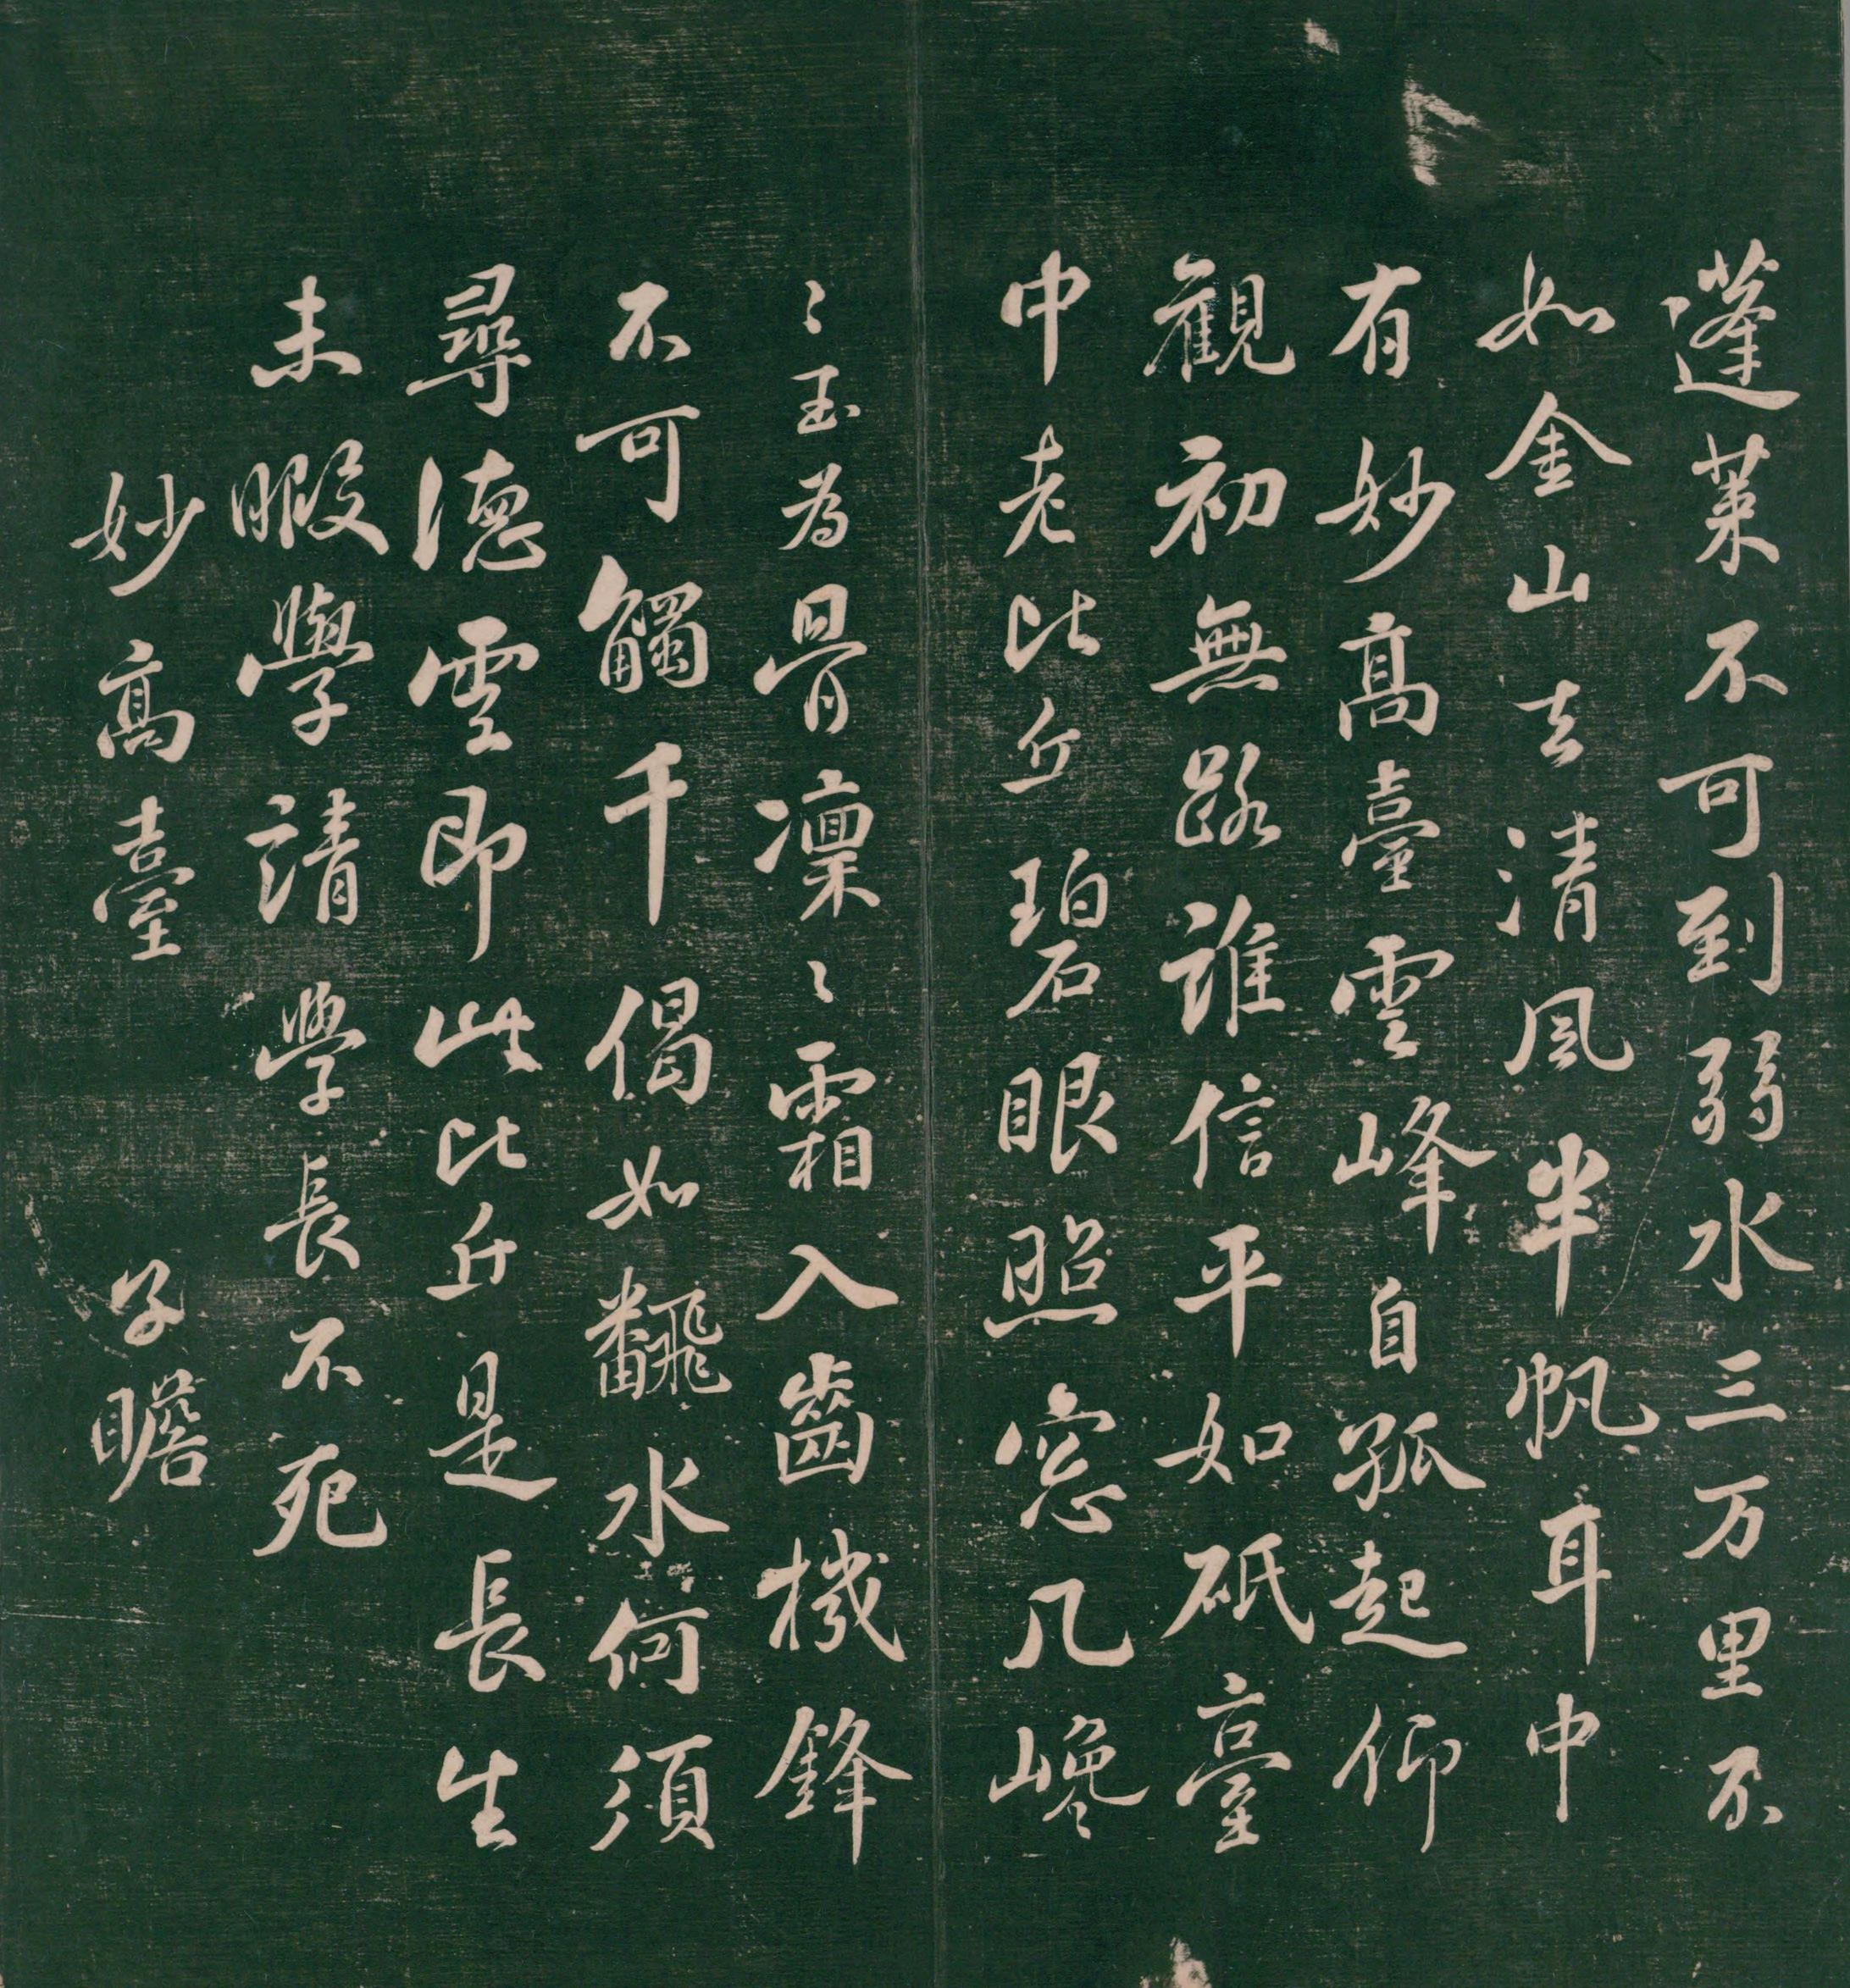 蓬萊不可到弱水三万里不
如金山去清風半帆耳中
有妙高臺雲峰自孤起仰
觀初無路誰信平如砥臺
中老比丘碧眼照窓几巉
〻玉為骨凜〻霜入齒機鋒
不可觸千偈如飜水何須
尋德雲即此比丘是長生
未暇學請學長不死
妙高臺 子瞻